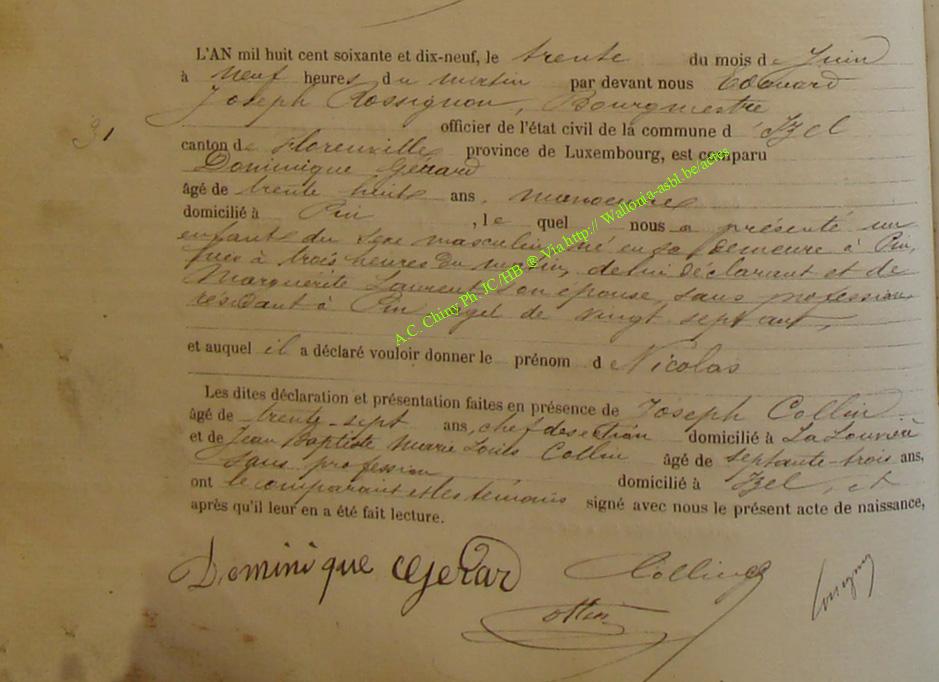 L'AN mil huit cent soixante et dix-neuf, le trente du mois de Juin
à neuf heures du matin par devant nous Edouard
Joseph Rossignon, Bourgmestre
31
officier de l'état civil de la commune d'Izel
canton de Florenville province de Luxembourg, est comparu
Dominique Gérard
âgé de trente huit ans, manoeuvre
domicilié à Pin, le quel nous a présenté un
enfant du sexe masculin, né en sa demeure à Pin,
à trois heures du matin, de lui déclarant et de
Marguerite Laurent, son épouse, sans profession
résidant à Pin, agée de vingt sept ans,
et auquel il a déclaré vouloir donner le prénom d Nicolas
Les dites déclaration et présentation faites en présence de Joseph Collin
âgé de trente-sept ans, chef de section domicilié à La Louvière
et de Jean Baptiste Marie Louis Collin âgé de septante-trois ans,
sans profession domicilié à Izel, et
ont le comparant et les témoins signé avec nous le présent acte de naissance,
après qu'il leur en a été fait lecture.
Dominique Gérard Collin
A.C. Chiny Ph. JC/HB ® Via http:// Wallonia-asbl.be/actes